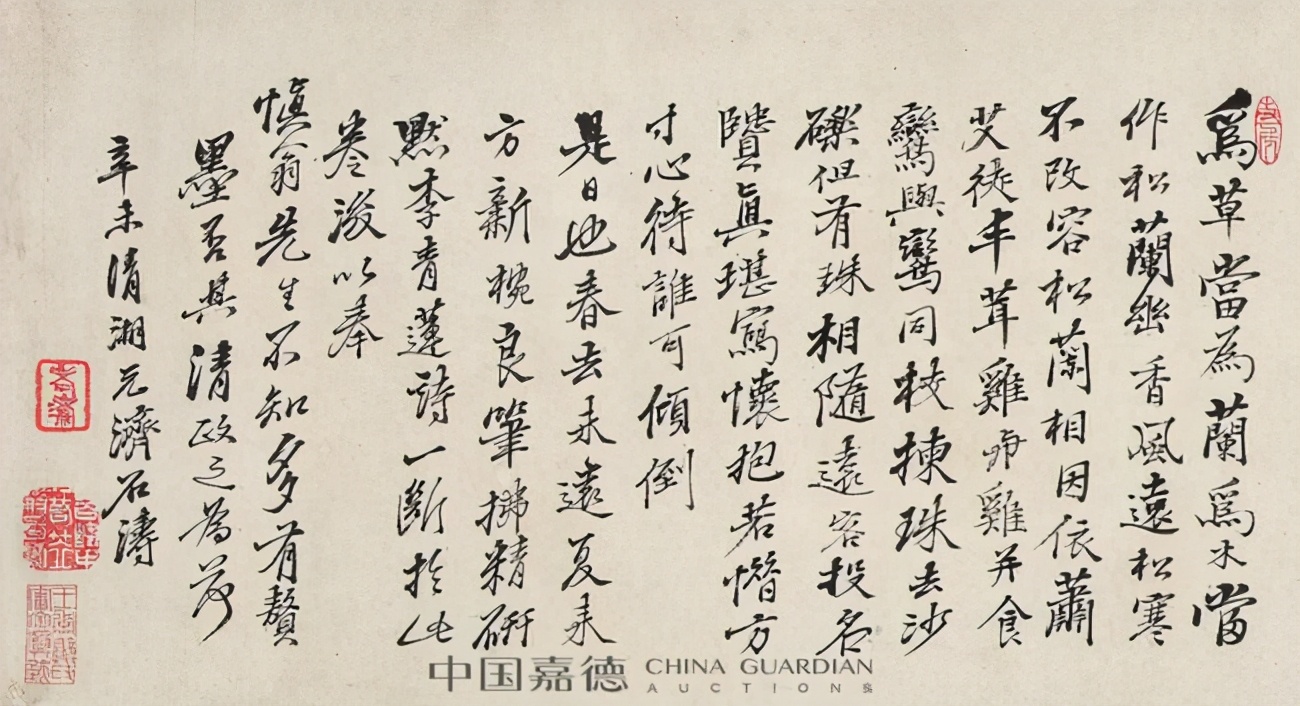 為草當為蘭為木當
作松蘭幽香風遠松寒
不改容松蘭相因依蕭
艾徒丰茸雞與雞并食
鸞與鸞同枝揀珠去沙
礫但有珠相隨遠客投名
贒真堪寫懷抱若惜方
寸心待誰可傾倒
是日也春去未遠夏來
方新椀良筆拂精研
默李青蓮詩一斷於此
卷後以奉
慎翁先生不知多有贅
墨否其清政之為荷
辛未清湘元濟石濤
中国嘉德 CHINA GUARDIAN
AUCTIONS